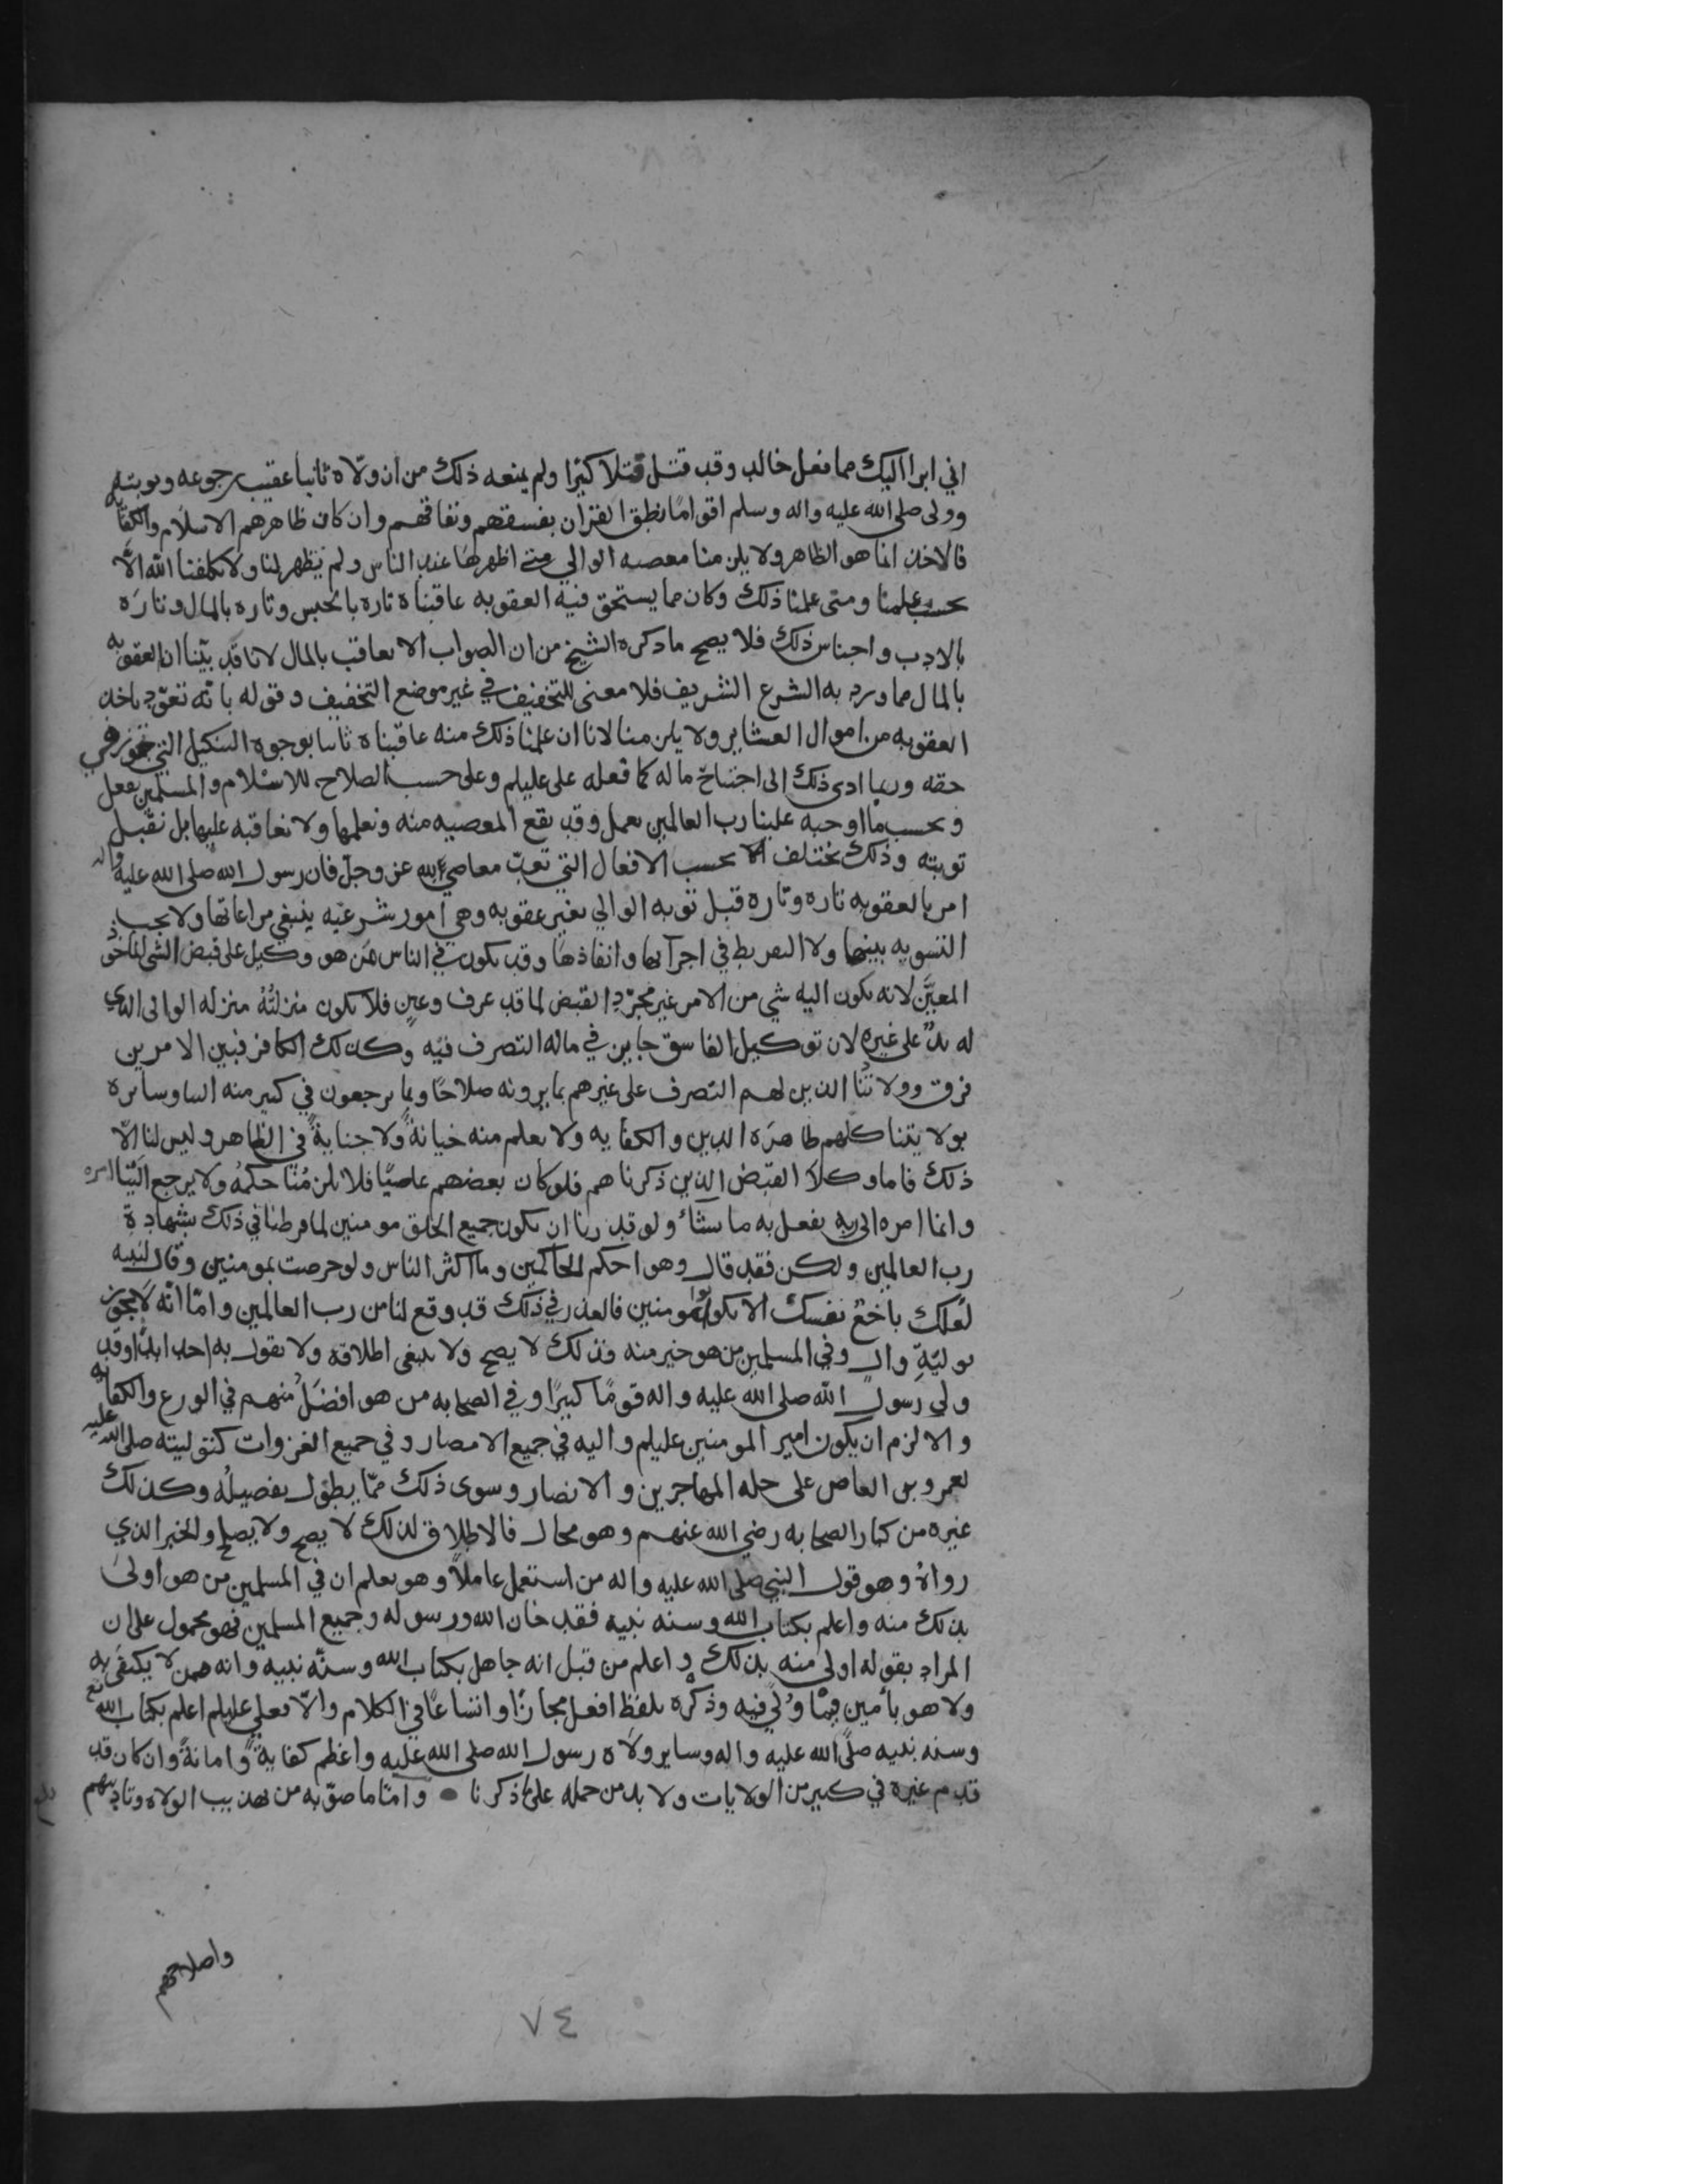 اني ابرا اليك مما فعل خالد وقد قتل قتلا كثيرا ولم يمنعه ذلك من ان ولّاه ثانيا عقيب رجوعه وتوبته
وولى صلى الله عليه واله وسلم اقواما نطق القران بفسقهم ونفاقهم وان كان ظاهرهم الاسلام والكفايه
فالاخذ انما هو الظاهر ولا يلزمنا معصيه الوالي متى اظهرها عند الناس ولم يظهر لنا ولا كلفنا الله الّا
بحسب علمنا ومتى علمنا ذلك وكان مما يستحق فيه العقوبه عاقبناه تاره بالحبس وتاره بالمال وتاره
بالادب واجناس ذلك فلا يصح ما ذكره الشيخ من ان الصواب الا نعاقب بالمال لانا قد بيّنا ان العقوبه
بالمال مما ورد به الشرع الشريف فلا معنى للتخفيف في غير موضع التخفيف وقوله بانه تعوّد باخذ
العقوبه من اموال العشاير ولا يلزمنا لانا ان علمنا ذلك منه عاقبناه ثانيا بوجوه التنكيل التي تجوز في
حقه وربما ادى ذلك الى اجتياح ماله كما فعله علي عليلم وعلى حسب الصلاح للاسلام والمسلمين نفعل
وبحسب ما اوجبه علينا رب العالمين نعمل وقد تقع المعصيه منه ونعلمها ولا نعاقبه عليها بل نقبل
توبته وذلك يختلف بحسب الافعال التي تعدّ معاصي لله عز وجل فان رسول الله صلى الله عليه واله
امر بالعقوبه تاره وتاره قبل توبه الوالي بغير عقوبه وهي امور شرعيه ينبغي مراعاتها ولا يجب
التسويه بينهما ولا التفريط في اجرآئها وانفاذها وقد يكون في الناس من هو وكيل على قبض الشي الماخوذ
المعيّن لانه يكون اليه شي من الامر غير مجرّد القبض لما قد عرف وعين فلا تكون منزلتُهُ منزله الوالي الذي
له يدٌ على غيره لان توكيل الفاسق جايز في ماله التصرف فيه وكذلك الكافر فبين الامرين
فرق وولاتُنا الذين لهم التصرف على غيرهم بما يرونه صلاحًا وبما يرجعون في كثير منه الينا وسايره
بولايتنا كلهم ظاهره الدين والكفايه ولا يعلم منه خيانةً ولا جنايةً في الظاهر وليس لنا الّا
ذلك فاما وكلا القبض الذين ذكرناهم فلو كان بعضهم عاصيًا فلا يلزمُنا حكمُهُ ولا يرجع الينا امره
وانما امره الى ربه يفعل به ما يشاء ولو قدرنا ان يكون جميع الخلق مومنين لما فرطنا في ذلك بشهادة
رب العالمين ولكن فقد قال وهو احكم الحاكمين وما اكثر الناس ولو حرصت بمومنين وقال لنبيه
لعلك باخعٌ نفسك الا يكونوا مومنين فالعذر في ذلك قد وقع لنا من رب العالمين وامّا انّه لا يجوز
توليةِ والٍ وفي المسلمين من هو خير منه فذلك لا يصح ولا ينبغى اطلاقه ولا يقول به احد ابدًا وقد
ولى رسول الله صلى الله عليه واله قومًا كثيرًا وفي الصحابه من هو افضلُ منهم في الورع والكفايه
والا لزم ان يكون امير المومنين عليلم واليه في جميع الامصار وفي جميع الغزوات كتوليته صلى الله عليه
لعمرو بن العاص على جله المهاجرين والانصار وسوى ذلك ممّا يطول تفصيلُه وكذلك
غيره من كبار الصحابه رضي الله عنهم وهو محال فالاطلاق لذلك لا يصح ولا يصلح والخبر الذي
رواهُ وهو قول النبي صلى الله عليه واله من استعمل عاملًا وهو يعلم ان في المسلمين من هو اولى
بذلك منه واعلم بكتاب الله وسنه نبيه فقد خان الله ورسوله وجميع المسلمين فهو محمول على ان
المراد بقوله اولى منه بذلك واعلم من قبل انه جاهل بكتاب الله وسنّه نبيه وانه ممن لا يكتفى به
ولا هو بأمين فيما وُلّي فيه وذكْره بلفظ افعل مجازًا واتساعًا في الكلام والّا فعلي عليلم اعلم بكتاب الله تع
وسنه نبيه صلّى الله عليه واله وساير ولاه رسول الله صلى الله عليه واعظم كفايةً وامانةً وان كان قد
قدم غيره في كثير من الولايات ولا بد من حمله على ما ذكرنا • وامّا ما صوّبه من تهذيب الولاه وتاديبهم
واصلاحهم
٧٤